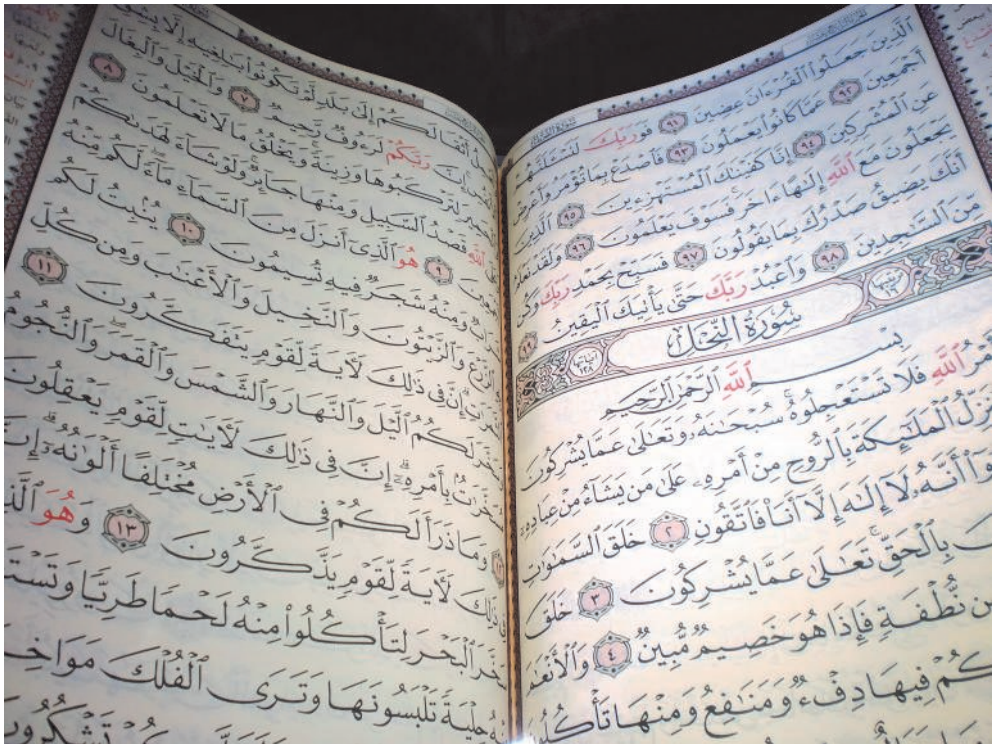 ٱلَّذِينَ جَعَلُوا۟ ٱلْقُرْءَانَ عِضِينَ ٩١ فَوَرَبِّكَ لَنَسْـَٔلَنَّهُمْ
أَجْمَعِينَ ٩٢ عَمَّا كَانُوا۟ يَعْمَلُونَ ٩٣ فَٱصْدَعْ بِمَا تُؤْمَرُ وَأَعْرِضْ
عَنِ ٱلْمُشْرِكِينَ ٩٤ إِنَّا كَفَيْنَٰكَ ٱلْمُسْتَهْزِءِينَ ٩٥ ٱلَّذِينَ
يَجْعَلُونَ مَعَ ٱللَّهِ إِلَٰهًا ءَاخَرَ ۚ فَسَوْفَ يَعْلَمُونَ ٩٦ وَلَقَدْ نَعْلَمُ
أَنَّكَ يَضِيقُ صَدْرُكَ بِمَا يَقُولُونَ ٩٧ فَسَبِّحْ بِحَمْدِ رَبِّكَ وَكُن
مِّنَ ٱلسَّٰجِدِينَ ٩٨ وَٱعْبُدْ رَبَّكَ حَتَّىٰ يَأْتِيَكَ ٱلْيَقِينُ ٩٩
سُورَةُ ٱلنَّحْلِ
بِسْمِ ٱللَّهِ ٱلرَّحْمَٰنِ ٱلرَّحِيمِ
أَمْرُ ٱللَّهِ فَلَا تَسْتَعْجِلُوهُ ۚ سُبْحَٰنَهُۥ وَتَعَٰلَىٰ عَمَّا يُشْرِكُونَ
يُنَزِّلُ ٱلْمَلَٰٓئِكَةَ بِٱلرُّوحِ مِنْ أَمْرِهِۦ عَلَىٰ مَن يَشَآءُ مِنْ عِبَادِهِۦٓ
أَنَّهُۥ لَآ إِلَٰهَ إِلَّآ أَنَا۠ فَٱتَّقُونِ ٢ خَلَقَ ٱلسَّمَٰوَٰتِ
بِٱلْحَقِّ ۚ تَعَٰلَىٰ عَمَّا يُشْرِكُونَ ٣ خَلَقَ
مِن نُّطْفَةٍ فَإِذَا هُوَ خَصِيمٌ مُّبِينٌ ٤ وَٱلْأَنْعَٰمَ
لَكُمْ فِيهَا دِفْءٌ وَمَنَٰفِعُ وَمِنْهَا تَأْكُلُونَ
أَثْقَالَكُمْ إِلَىٰ بَلَدٍ لَّمْ تَكُونُوا۟ بَٰلِغِيهِ إِلَّا بِشِقِّ
رَبَّكُمْ لَرَءُوفٌ رَّحِيمٌ ٧ وَٱلْخَيْلَ وَٱلْبِغَالَ
لِتَرْكَبُوهَا وَزِينَةً ۚ وَيَخْلُقُ مَا لَا تَعْلَمُونَ ٨
ٱللَّهِ قَصْدُ ٱلسَّبِيلِ وَمِنْهَا جَآئِرٌ ۚ وَلَوْ شَآءَ لَهَدَىٰكُمْ
٩ هُوَ ٱلَّذِىٓ أَنزَلَ مِنَ ٱلسَّمَآءِ مَآءً ۖ لَّكُم مِّنْهُ
وَمِنْهُ شَجَرٌ فِيهِ تُسِيمُونَ ١٠ يُنۢبِتُ لَكُم
ٱلزَّرْعَ وَٱلزَّيْتُونَ وَٱلنَّخِيلَ وَٱلْأَعْنَٰبَ وَمِن كُلِّ
إِنَّ فِى ذَٰلِكَ لَءَايَةً لِّقَوْمٍ يَتَفَكَّرُونَ ١١
لَكُمُ ٱلَّيْلَ وَٱلنَّهَارَ وَٱلشَّمْسَ وَٱلْقَمَرَ ۖ وَٱلنُّجُومُ
مُسَخَّرَٰتٌۢ بِأَمْرِهِۦٓ ۗ إِنَّ فِى ذَٰلِكَ لَءَايَٰتٍ لِّقَوْمٍ يَعْقِلُونَ
وَمَا ذَرَأَ لَكُمْ فِى ٱلْأَرْضِ مُخْتَلِفًا أَلْوَٰنُهُۥٓ ۗ إِنَّ
ذَٰلِكَ لَءَايَةً لِّقَوْمٍ يَذَّكَّرُونَ ١٣ وَهُوَ ٱلَّذِى
سَخَّرَ ٱلْبَحْرَ لِتَأْكُلُوا۟ مِنْهُ لَحْمًا طَرِيًّا
حِلْيَةً تَلْبَسُونَهَا وَتَرَى ٱلْفُلْكَ مَوَاخِرَ
تَشْكُرُونَ